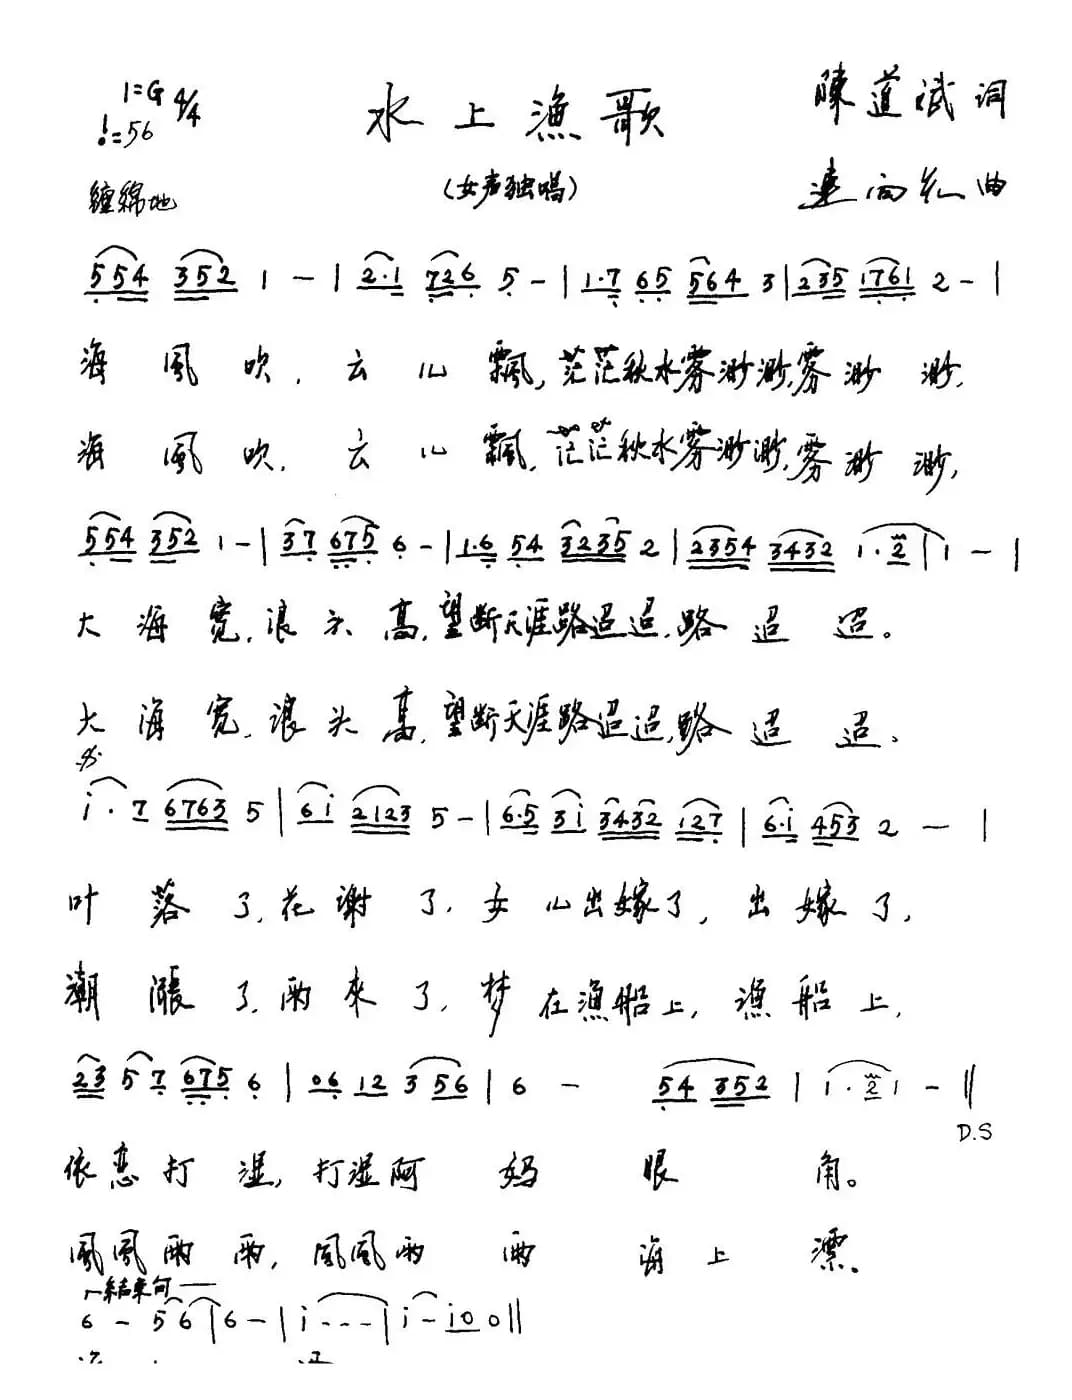 1=G 4/4
水上漁歌
陳道斌 词
=56
(女声独唱)
連向 曲
缠綿地
554 352 1 - | 2·1 726 5 - | 1·7 65 564 3 | 235 1761 2 - |
海風吹,云儿飄,茫茫秋水雾渺渺,雾渺渺,
海風吹,云儿飄,茫茫秋水雾渺渺,雾渺渺,
554 352 1 - | 37 675 6 - | 1·6 54 3235 2 | 2354 3432 1·2 | 1 - |
大海宽,浪头高,望断天涯路迢迢,路迢迢。
大海宽,浪头高,望断天涯路迢迢,路迢迢、
i·7 6763 5 | 6i 2123 5 - | 6·5 3i 3432 127 | 6·i 453 2 - |
叶落了,花谢了,女儿出嫁了,出嫁了,
潮漲了,雨來了,梦在漁船上,漁船上,
23 57 675 6 | 06 12 3 56 | 6 - 54 352 | 1·2 1 - ‖
D.S
依恋打湿,打湿阿妈眼角。
風風雨雨,風風雨雨海上漂。
結束句
6 - 5 6 | 6 - | i - - - | i - i0 0 ‖